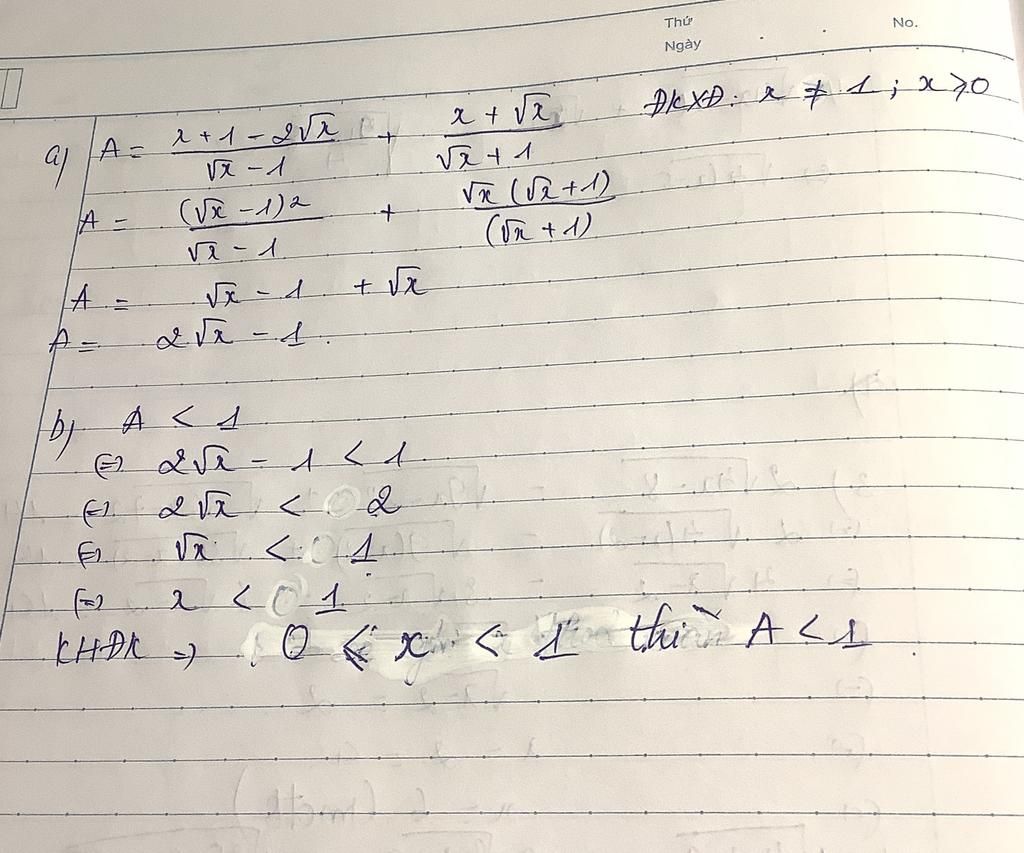 Thứ
Ngày
No.
a) A = (x + 1 - 2√x)/(√x - 1) + (x + √x)/(√x + 1) ĐKXĐ: x ≠ 1 ; x ⩾ 0
A = (√x - 1)²/(√x - 1) + √x (√x + 1)/(√x + 1)
A = √x - 1 + √x
A = 2√x - 1.
b) A < 1
(=) 2√x - 1 < 1
(=) 2√x < 2
(=) √x < 1
(=) x < 1
KHĐK => 0 ⩽ x < 1 thì A < 1.